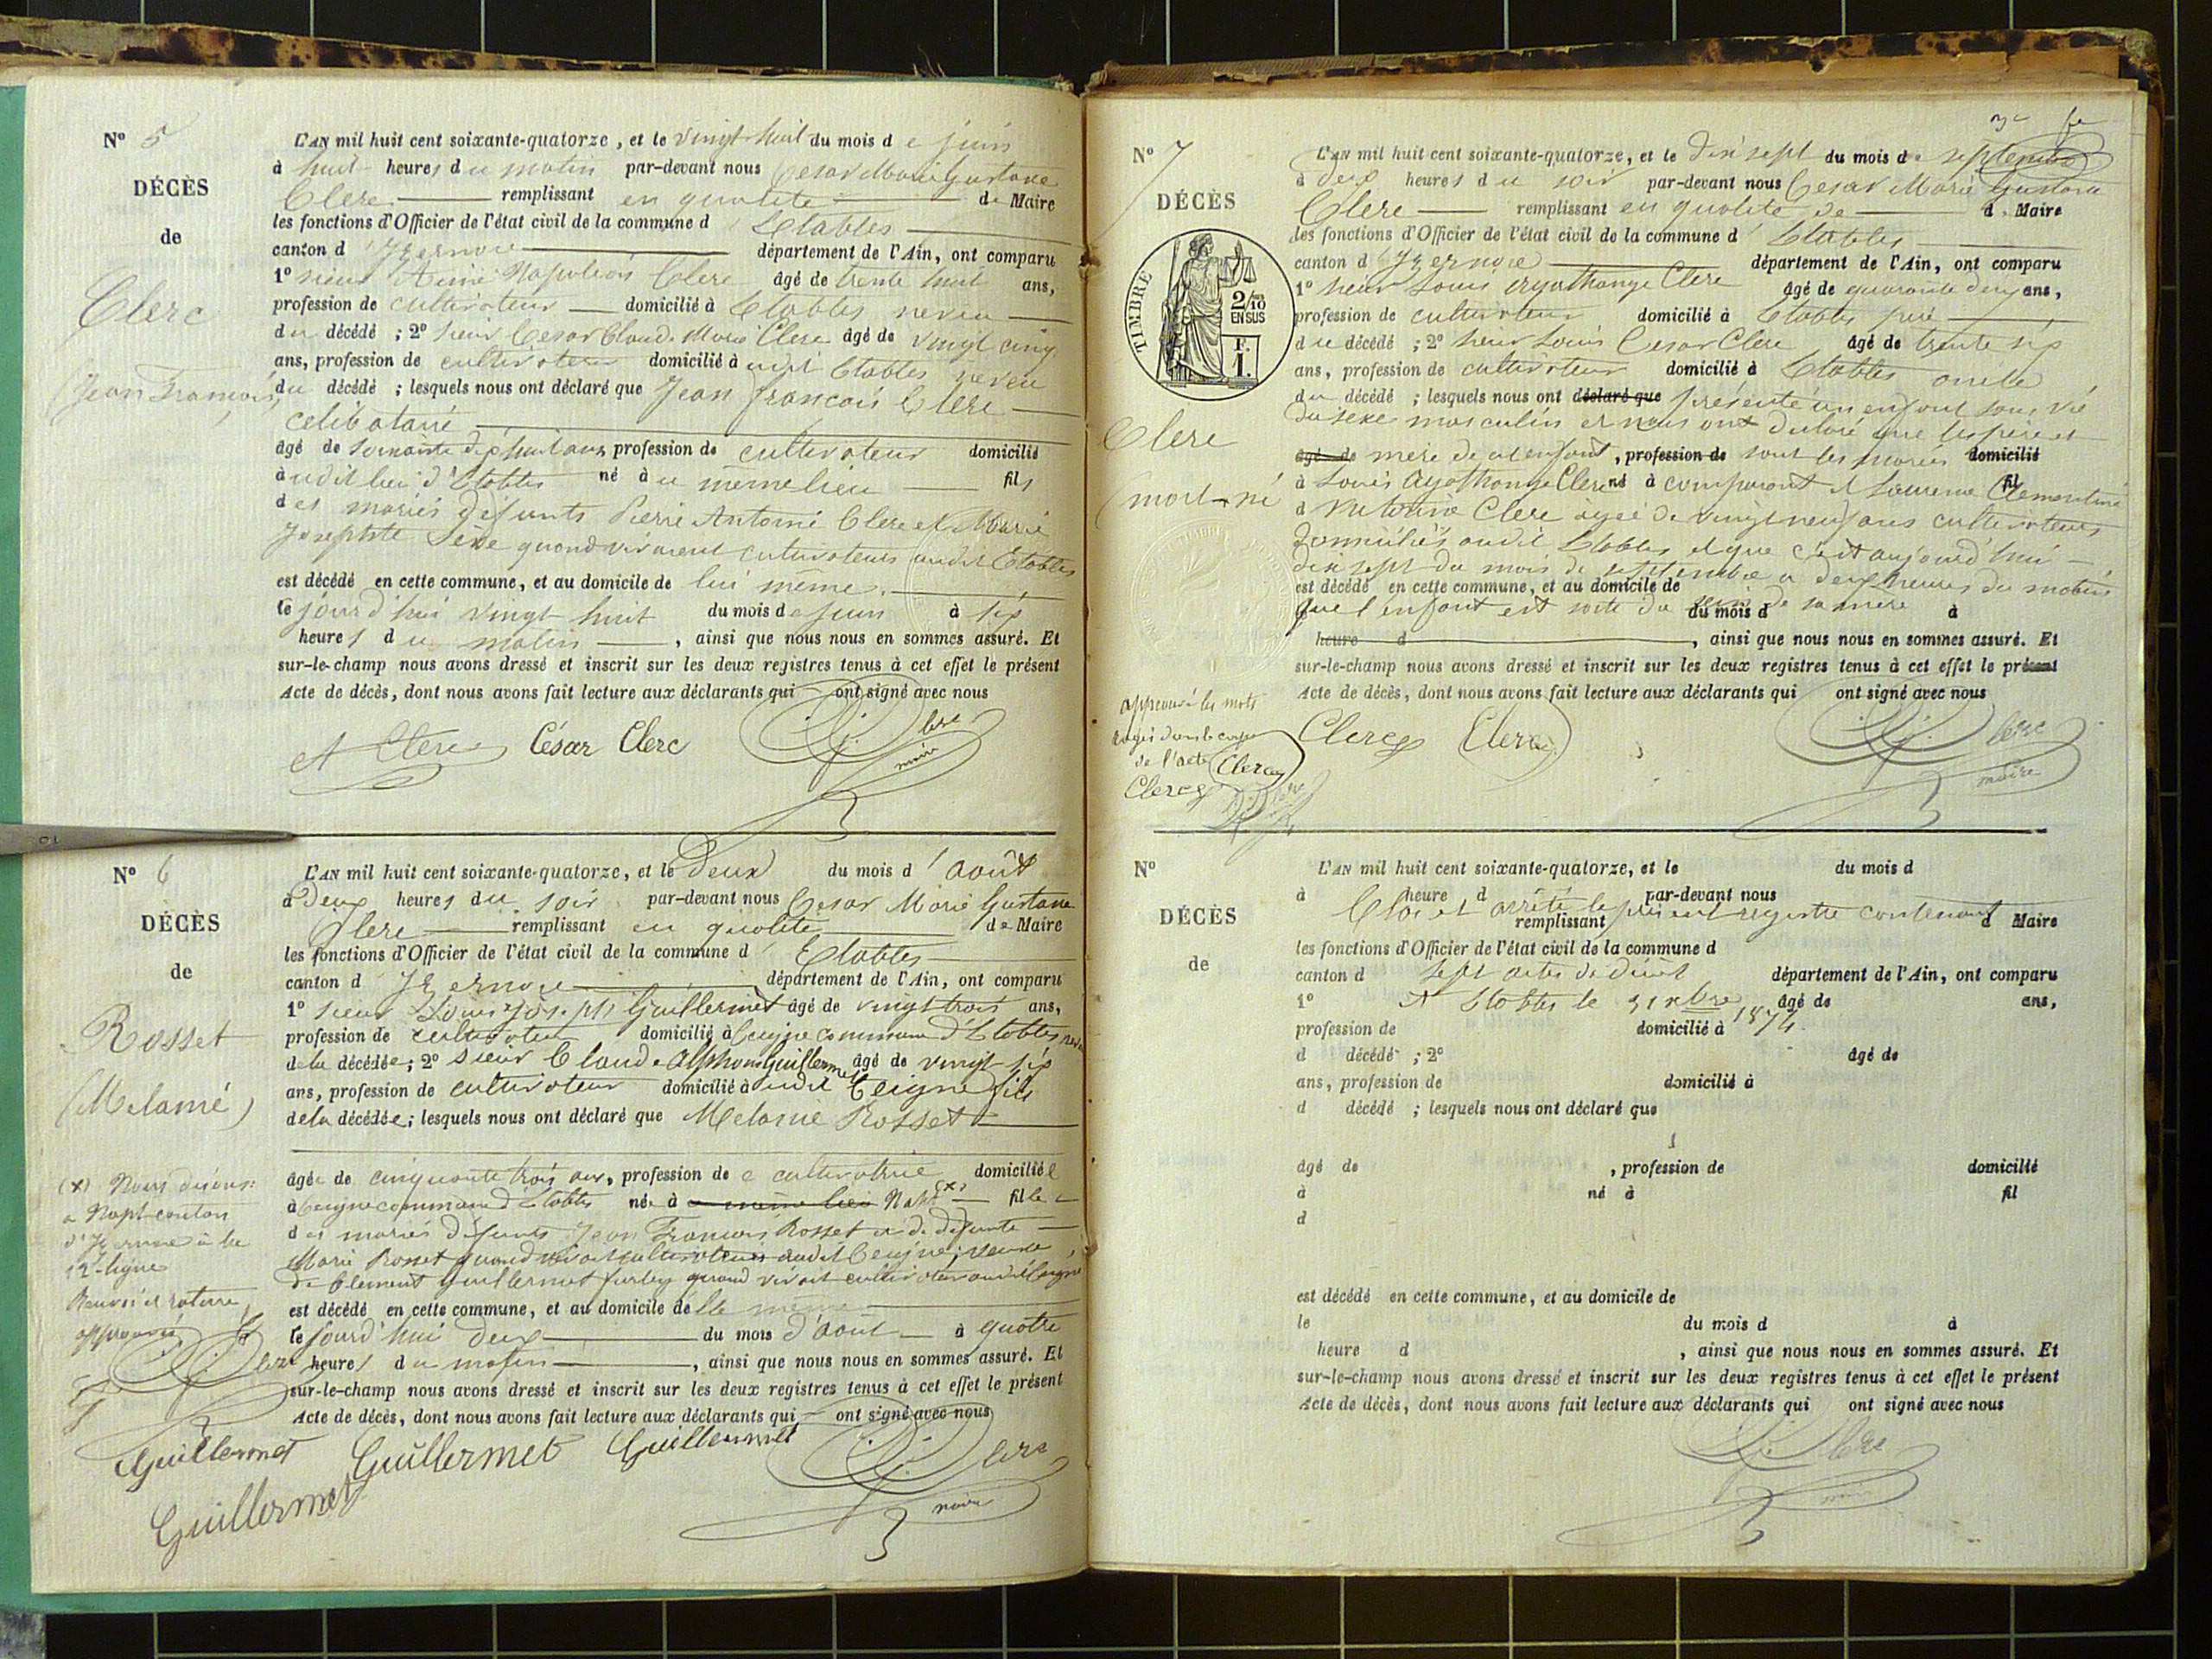 N° 5
DÉCÈS
de
Clerc
(Jean François)
L'AN mil huit cent soixante-quatorze, et le vingt huit du mois de juin
à huit heures du matin par-devant nous Cesar Marie Gustave
Clerc remplissant en qualité de Maire
les fonctions d'Officier de l'état civil de la commune d'Etables
canton d'Izernore département de l'Ain, ont comparu
1° sieur Aimé Napoléon Clerc âgé de trente huit ans,
profession de cultivateur domicilié à Etables neveu
du décédé ; 2° sieur Cesar Claude Marie Clerc âgé de vingt cinq
ans, profession de cultivateur domicilié à udit Etables neveu
du décédé ; lesquels nous ont déclaré que Jean francois Clerc
celibataire
âgé de soixante dix huit ans profession de cultivateur domicilié
audit lieu d'Etables né au même lieu fils
des mariés défunts Pierre Antoine Clerc et Marie
Josephte quand vivaient cultivateurs audit Etables
est décédé en cette commune, et au domicile de lui même
le jourd'hui vingt huit du mois de juin à six
heures du matin, ainsi que nous nous en sommes assuré. Et
sur-le-champ nous avons dressé et inscrit sur les deux registres tenus à cet effet le présent
Acte de décès, dont nous avons fait lecture aux déclarants qui ont signé avec nous
A Clerc César Clerc Clerc
maire
N° 6
DÉCÈS
de
Rosset
(Melanie)
L'AN mil huit cent soixante-quatorze, et le deux du mois d'août
à Deux heures du soir par-devant nous Cesar Marie Gustave
Clerc remplissant en qualité de Maire
les fonctions d'Officier de l'état civil de la commune d'Etables
canton d'Izernore département de l'Ain, ont comparu
1° sieur Louis Joseph Guillermet âgé de vingt trois ans,
profession de cultivateur domicilié à Ceigne commune d'Etables
de la décédée ; 2° sieur Claude Alphonse Guillermet âgé de vingt six
ans, profession de cultivateur domicilié audit Ceigne fils
de la décédée ; lesquels nous ont déclaré que Melanie Rosset
âgée de cinquante trois ans, profession de cultivatrice domiciliée
à Ceigne commune d'Etables née à même lieu Napt (x) fille
des mariés défunts Jean François Rosset et de défunte
Marie Rosset quand vivait cultivateurs audit Ceigne; veuve
de Clement Guillermet quand vivait cultivateur audit Ceigne
est décédé en cette commune, et au domicile d'elle même
le jourd'hui deux du mois d'aout à quatre
heures du matin, ainsi que nous nous en sommes assuré. Et
sur-le-champ nous avons dressé et inscrit sur les deux registres tenus à cet effet le présent
Acte de décès, dont nous avons fait lecture aux déclarants qui ont signé avec nous
(x) Nous disons
a Napt canton
d'Izernore à la
12e ligne
Renvoi et rature
approuvés
Clerc
Guillermet Guillermet Guillermet Clerc
Guillermet maire
N° 7
DÉCÈS
TIMBRE
2/10
EN SUS
F.
1.
Clerc
(mort-né
L'AN mil huit cent soixante-quatorze, et le dix sept du mois de septembre
à deux heures du soir par-devant nous Cesar Marie Gustave
Clerc remplissant en qualité de d. Maire
les fonctions d'Officier de l'état civil de la commune d'Etables
canton d'Izernore département de l'Ain, ont comparu
1° sieur Louis Agathange Clerc âgé de quarante deux ans,
profession de cultivateur domicilié à Etables père
du décédé ; 2° sieur Louis Cesar Clerc âgé de trente six
ans, profession de cultivateur domicilié à Etables oncle
du décédé ; lesquels nous ont déclaré que présenté un enfant sans vie
du sexe masculin et nous ont declaré que les père et
âgé de mère de cet enfant, profession de sont les mariés domicilié
à Louis Agathange Clerc né à comparant et Laurence Clementine fil
d Victorine Clerc agée de vingt neuf ans cultivateurs
domiciliés audit Etables et que c'est aujourd'hui
dix sept du mois de septembre a deux heures du matin
est décédé en cette commune, et au domicile de
que l'enfant est sorti du sein de sa mère du mois d à
heure d, ainsi que nous nous en sommes assuré. Et
sur-le-champ nous avons dressé et inscrit sur les deux registres tenus à cet effet le présent
Acte de décès, dont nous avons fait lecture aux déclarants qui ont signé avec nous
approuvé les mots
rayés dans le corps
de l'acte Clerc
Clerc
Clerc Clerc Clerc
maire
N°
DÉCÈS
de
L'AN mil huit cent soixante-quatorze, et le du mois d
à heure d par-devant nous
Clos et arrêté le présent registre contenant
remplissant d Maire
les fonctions d'Officier de l'état civil de la commune d
canton d sept actes de décès département de l'Ain, ont comparu
1° A Etables le 31 Xbre 1874. âgé de ans,
profession de domicilié à
d décédé ; 2° âgé de
ans, profession de domicilié à
d décédé ; lesquels nous ont déclaré que
âgé de , profession de domicilié
à né à fil
d
est décédé en cette commune, et au domicile de
le du mois d à
heure d , ainsi que nous nous en sommes assuré. Et
sur-le-champ nous avons dressé et inscrit sur les deux registres tenus à cet effet le présent
Acte de décès, dont nous avons fait lecture aux déclarants qui ont signé avec nous
Clerc
maire